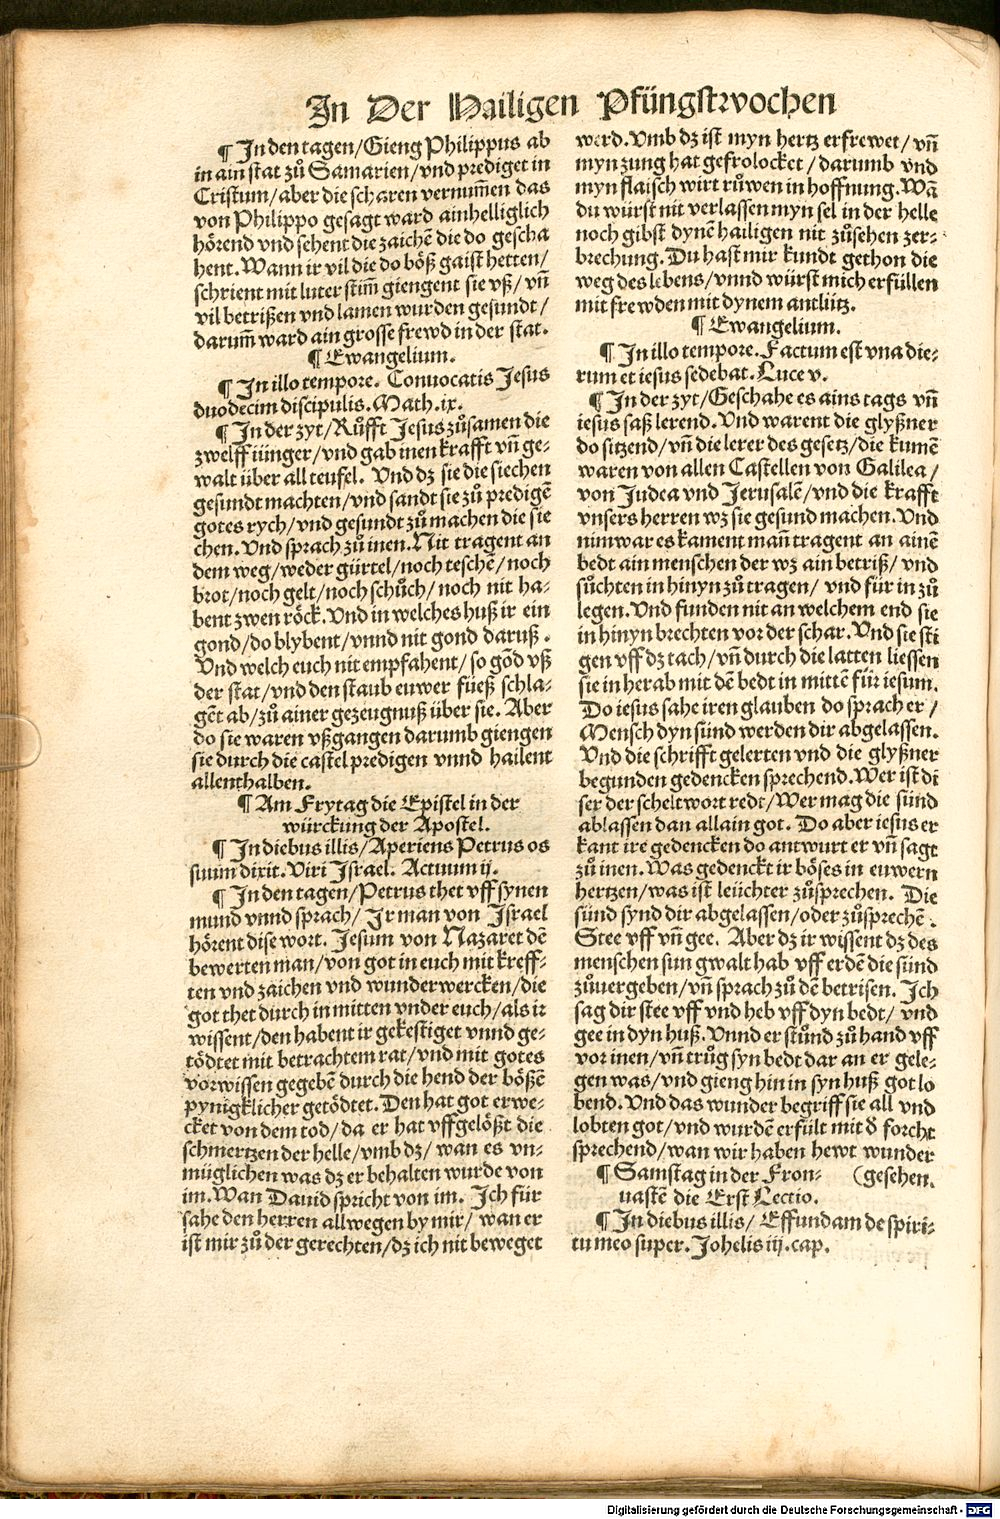 In Der Hailigen Pfüngstwochen
¶ In den tagen/Gieng Philippus ab
in ain stat zů Samarien/vnd prediget in
Cristum/aber die scharen vernum̄en das
von Philippo gesagt ward ainhelliglich
hörend vnd sehent die zaichē die do gescha
hent. Wann ir vil die do böß gaist hetten/
schrient mit luter stim̄ giengent sie vß/ vn̄
vil betrißen vnd lamen wurden gesundt/
darum̄ ward ain grosse frewd in der stat.
¶ Ewangelium.
¶ In illo tempore. Conuocatis Jesus
duodecim discipulis. Math.ix.
¶ In der zyt/Růfft Jesus zůsamen die
zwelff iünger/vnd gab inen krafft vn̄ ge-
walt über all teufel. Vnd dz sie die siechen
gesundt machten/vnd sandt sie zů predigē
gotes rych/vnd gesundt zů machen die sie
chen. Vnd sprach zů inen. Nit tragent an
dem weg/weder gürtel/noch teschē/noch
brot/noch gelt/noch schůch/ noch nit ha-
bent zwen röck. Vnd in welches huß ir ein
gond/do blybent/vnnd nit gond daruß.
Vnd welch euch nit empfahent/ so gōd vß
der stat/vnd den staub euwer füeß schla-
gēt ab/zů ainer gezeugnuß über sie. Aber
do sie waren vßgangen darumb giengen
sie durch die castel predigen vnnd hailent
allenthalben.
¶ Am Frytag die Epistel in der
würckung der Apostel.
¶ In diebus illis/Aperiens Petrus os
suum dixit. Viri Israel. Actuum ij.
¶ In den tagen/Petrus thet vff synen
mund vnnd sprach/ Ir man von Israel
hörent dise wort. Jesum von Nazaret dē
bewerten man/von got in euch mit kreff-
ten vnd zaichen vnd wunderwercken/die
got thet durch in mitten vnder euch/als ir
wissent/den habent ir gekestiget vnnd ge-
tödtet mit betrachtem rat/vnd mit gotes
vorwissen gegebē durch die hend der bößē
pynigklicher getödtet. Den hat got erwe-
cket von dem tod/da er hat vffgelößt die
schmertzen der helle/vmb dz/ wan es vn-
müglichen was dz er behalten wurde von
im. Wan Dauid spricht von im. Ich für
sahe den herren allwegen by mir/ wan er
ist mir zů der gerechten/dz ich nit beweget
werd. Vmb dz ist myn hertz erfrewet/ vn̄
myn zung hat gefrolocket/darumb vnd
myn flaisch wirt růwen in hoffnung. Wā
du würst nit verlassen myn sel in der helle
noch gibst dynē hailigen nit zůsehen zer-
brechung. Du hast mir kundt gethon die
weg des lebens/vnnd würst mich erfüllen
mit frewden mit dynem antlütz.
¶ Ewangelium.
¶ In illo tempore. Factum est vna die-
rum et iesus sedebat. Luce v.
¶ In der zyt/Geschahe es ains tags vn̄
iesus saß lerend. Vnd warent die glyßner
do sitzend/vn̄ die lerer des gesetz/die kumē
waren von allen Castellen von Galilea/
von Judea vnd Jerusalē/vnd die krafft
vnsers herren wz sie gesund machen. Vnd
nimwar es kament man̄ tragent an ainē
bedt ain menschen der wz ain betriß/ vnd
sůchten in hinyn zů tragen/ vnd für in zů
legen. Vnd funden nit an welchem end sie
in hinyn brechten vor der schar. Vnd sie sti
gen vff dz tach/vn̄ durch die latten liessen
sie in herab mit dē bedt in mittē für iesum.
Do iesus sahe iren glauben do sprach er/
Mensch dyn sünd werden dir abgelassen.
Vnd die schrifft gelerten vnd die glyßner
begunden gedencken sprechend. Wer ist di
ser der scheltwort redt/Wer mag die sünd
ablassen dan allain got. Do aber iesus er
kant ire gedencken do antwurt er vn̄ sagt
zů inen. Was gedenckt ir böses in euwern
hertzen/was ist leiichter zůsprechen. Die
sünd synd dir abgelassen/oder zůsprechē.
Stee vff vn̄ gee. Aber dz ir wissent dz des
menschen sun gwalt hab vff erdē die sünd
zůuergeben/vn̄ sprach zů dē betrisen. Ich
sag dir stee vff vnd heb vff dyn bedt/ vnd
gee in dyn huß. Vnnd er stůnd zů hand vff
vor inen/vn̄ trůg syn bedt dar an er gele-
gen was/vnd gieng hin in syn huß got lo
bend. Vnd das wunder begriff sie all vnd
lobten got/vnd wurdē erfült mit ð forcht
sprechend/wan wir haben hewt wunder
¶ Samstag in der Fron- (gesehen.
uastē die Erst Lectio.
¶ In diebus illis/ Effundam de spiri-
tu meo super. Johelis iij. cap.
Digitalisierung gefördert durch die Deutsche Forschungsgemeinschaft - DFG